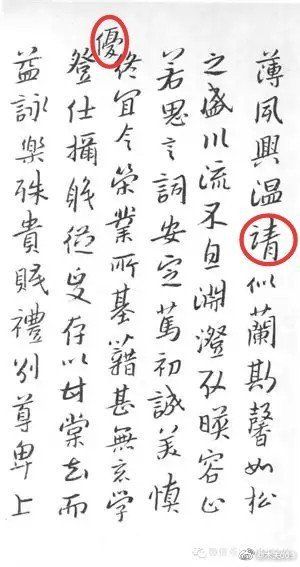 薄夙興温請似蘭斯馨如松
之盛川流不息淵澄取暎容止
若思言詞安定篤初誠美慎
終宜令榮業所基藉甚無竟学
優
登仕攝職從政存以甘棠去而
益詠樂殊貴賤禮別尊卑上